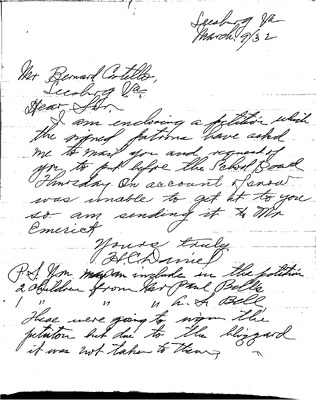 Leesburg Va
March 9/32
Mr Bernard Costello,
Leesburg Va.
Dear Sir.
I am enclosing a petition which
the signed patrons have asked
me to mail you and request of
you to put before the School Board
Thursday On account of snow
was unable to get it to you
so am sending it to Mr
Emerick
Yours truly
H C Daniel
P.S You may include in the petition
2 children from Mr Paul
1 " " " A. S Bell
These were going to sign the
petition but due to the blizzard
it was not taken to them,